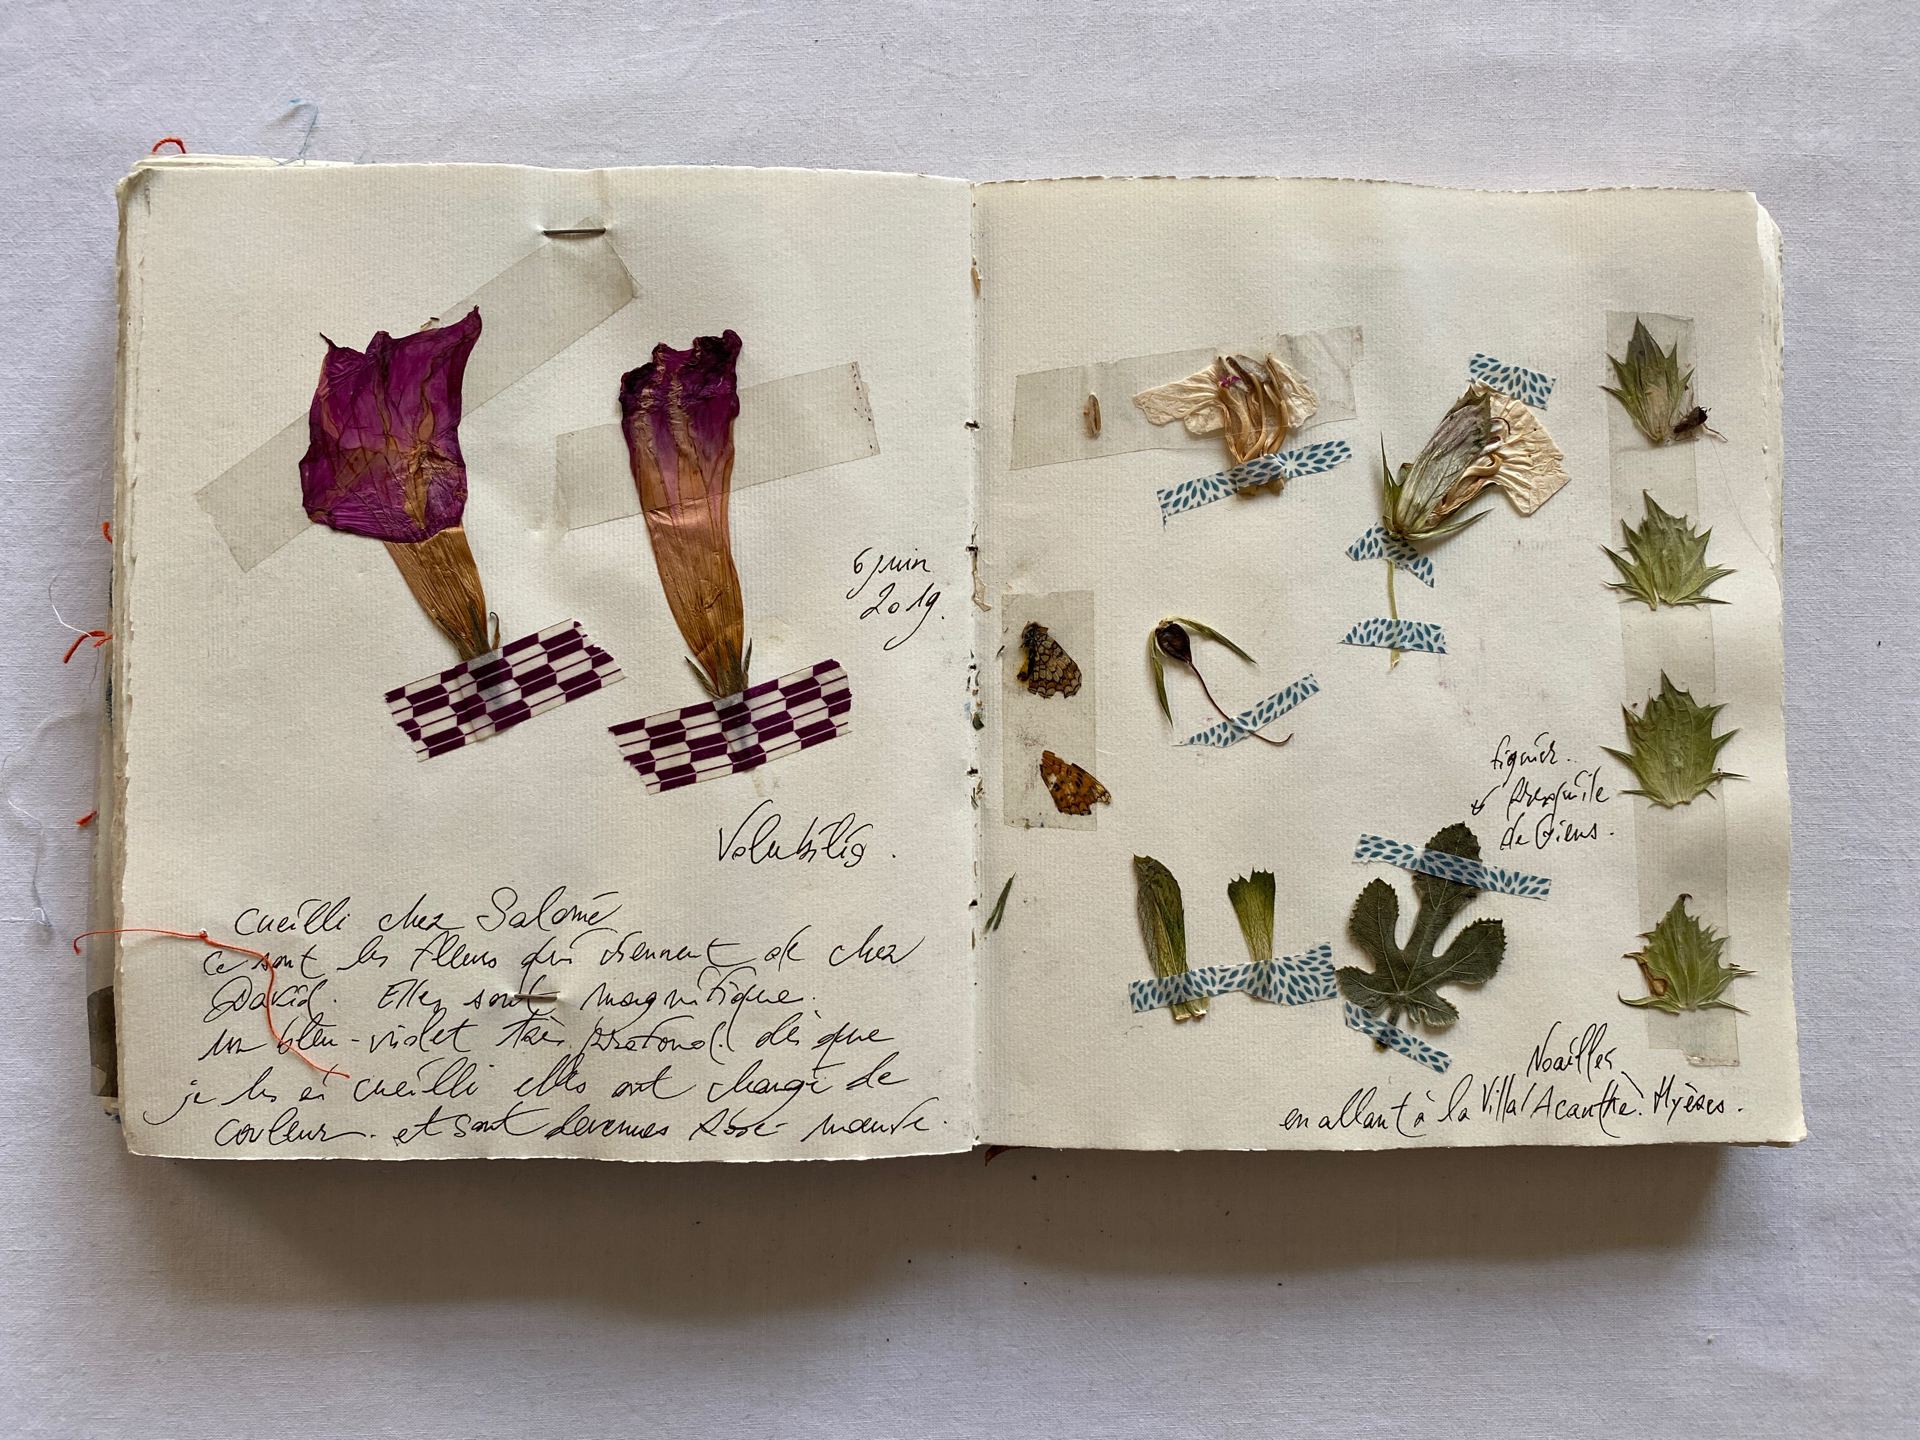 6 juin
2019.
Volubilis.
Cueilli chez Salomé
ce sont les fleurs qui viennent de chez
David. Elles sont magnifique.
un bleu-violet très profond. dès que
je les ai cueilli elles ont changé de
couleur. et sont devenues rose-mauve.
figuier.
presqu'île
de Giens.
Noailles
en allant à la Villa / Acanthe. Hyères.